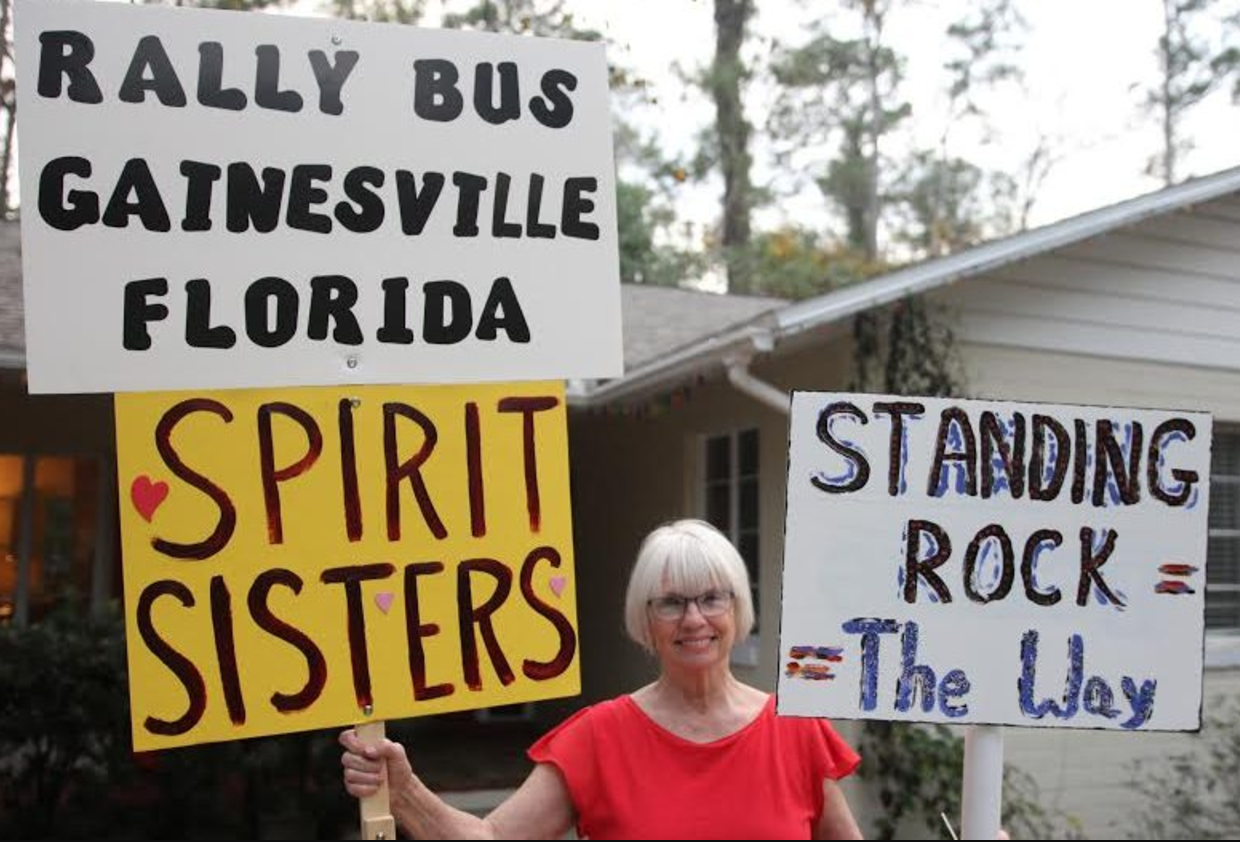 RALLY BUS
GAINESVILLE
FLORIDA
SPIRIT
SISTERS
STANDING
ROCK =
= The Way